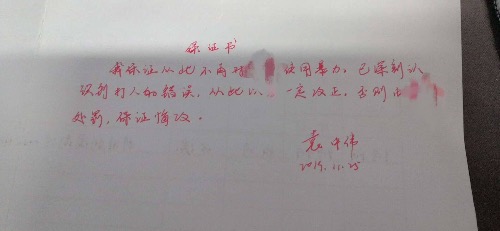 保证书
我保证从此不再对 使用暴力，已深刻认
识到打人的错误，从此以 一定改正，否则由
处罚，保证悔改。
袁中伟
2019.11.25